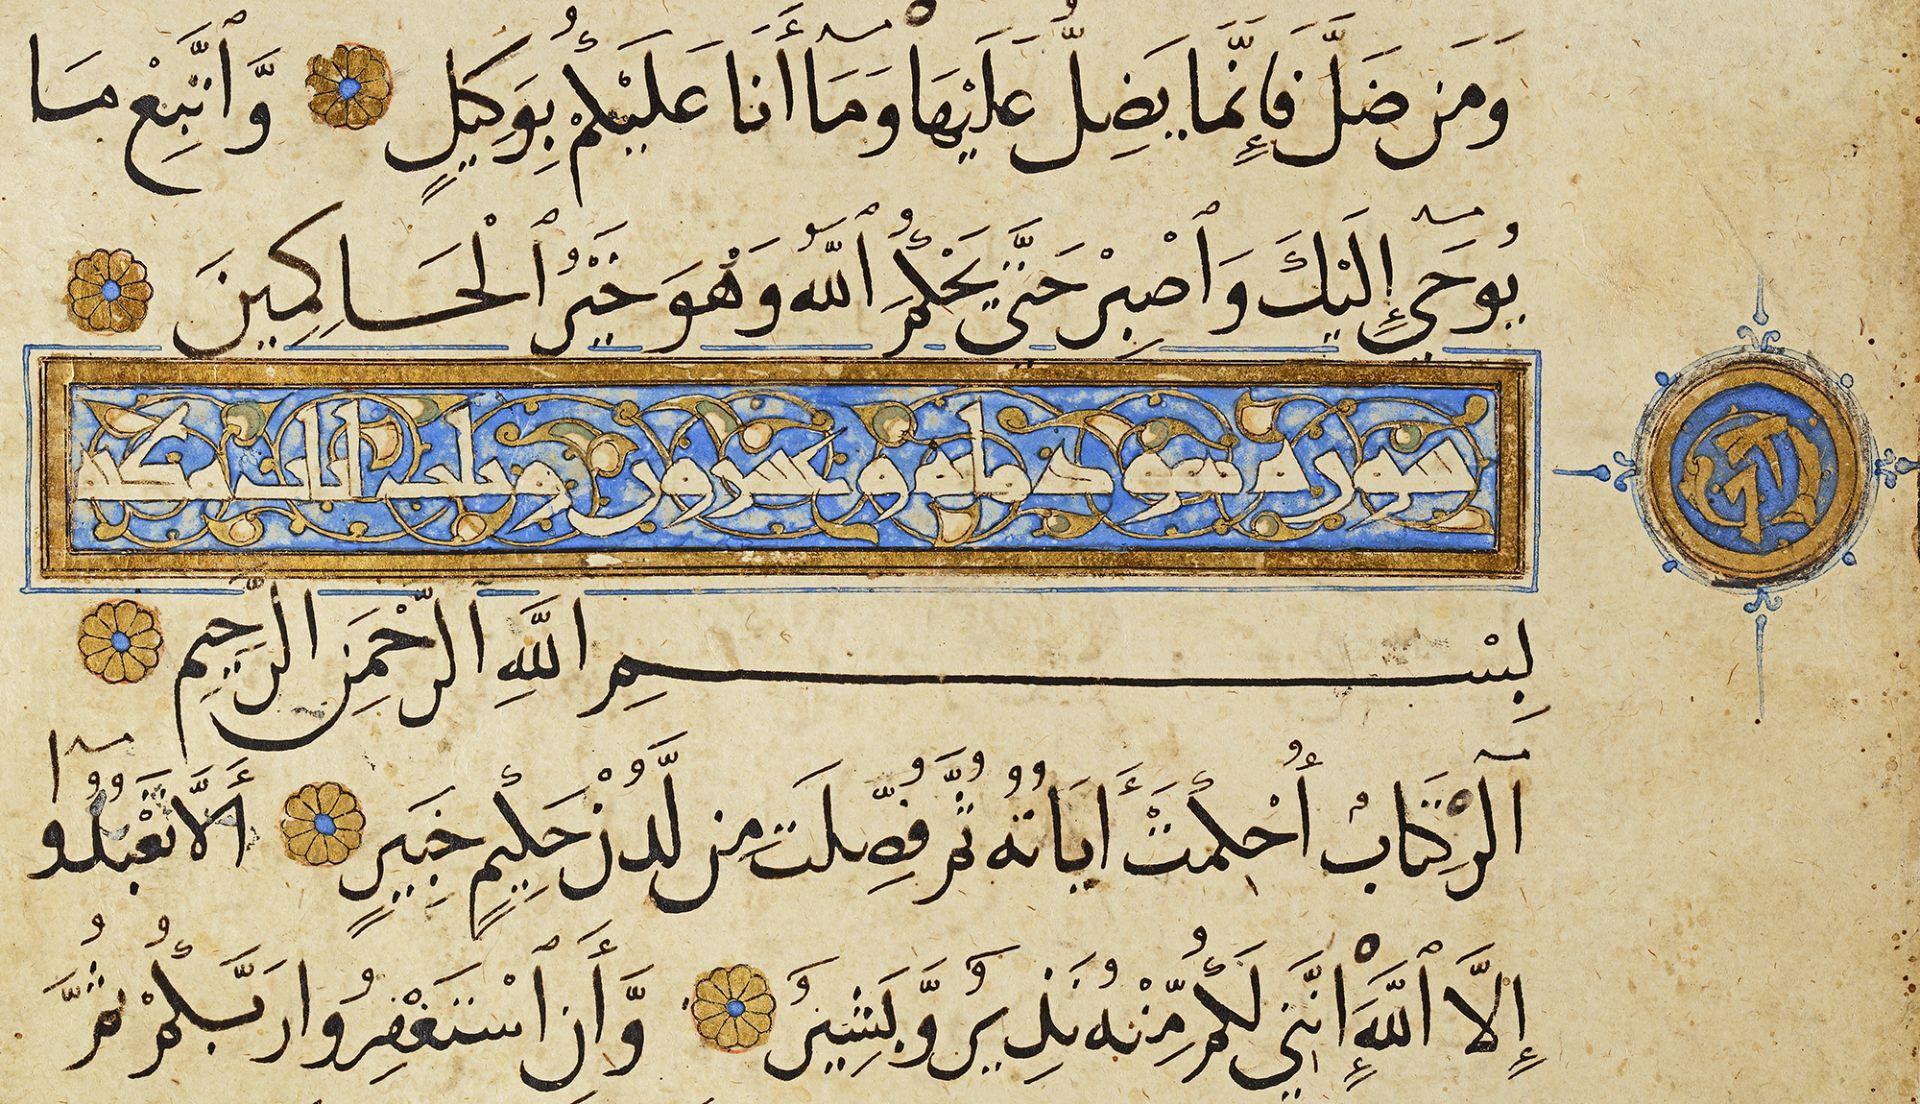 وَمَن ضَلَّ فَإِنَّمَا يَضِلُّ عَلَيْهَا وَمَا أَنَا عَلَيْكُمْ بِوَكِيلٍ وَّٱتَّبِعْ مَا
يُوحَىٓ إِلَيْكَ وَٱصْبِرْ حَتَّى يَحْكُمَ ٱللَّهُ وَهْوَ خَيْرُ ٱلْحَاكِمِينَ
سورة هود مايه وعشرون وثلث ايات
بِسْمِ اللَّهِ الرَّحْمَنِ الرَّحِيمِ
الٓر كِتَابٌ أُحْكِمَتْ ءَايَاتُهُ ثُمَّ فُصِّلَتْ مِن لَّدُنْ حَكِيمٍ خَبِيرٍ أَلَّا تَعْبُدُوٓا
إِلَّا ٱللَّهَ إِنَّنِي لَكُم مِّنْهُ نَذِيرٌ وَّبَشِيرٌ وَّأَنِ ٱسْتَغْفِرُوا رَبَّكُمْ ثُمَّ